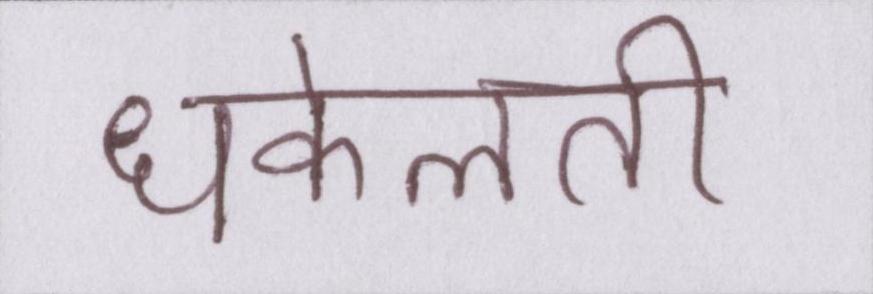 धकेलती